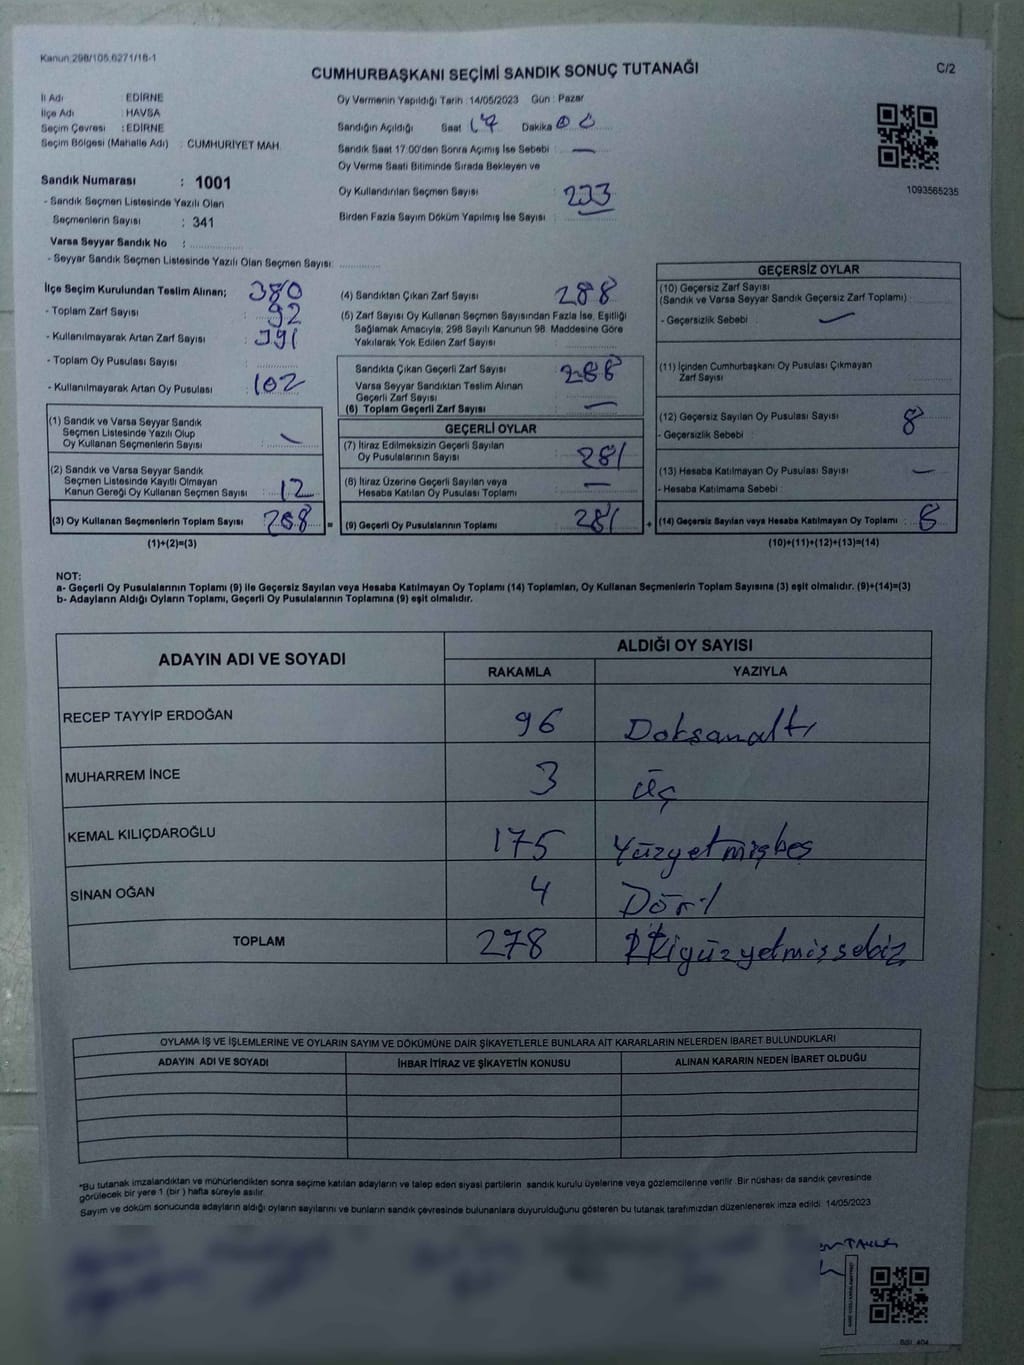 Kanun 298/105,6271/16-1
CUMHURBAŞKANI SEÇİMİ SANDIK SONUÇ TUTANAĞI
C/2
İl Adı EDİRNE
İlçe Adı : HAVSA
Seçim Çevresi : EDİRNE
Seçim Bölgesi (Mahalle Adı) : CUMHURİYET MAH.
Sandık Numarası : 1001
- Sandık Seçmen Listesinde Yazılı Olan
Seçmenlerin Sayısı : 341
Varsa Seyyar Sandık No :
- Seyyar Sandık Seçmen Listesinde Yazılı Olan Seçmen Sayısı:
Oy Vermenin Yapıldığı Tarih : 14/05/2023 Gün : Pazar
Sandığın Açıldığı Saat 17 Dakika 00
Sandık Saat 17:00'den Sonra Açımış İse Sebebi : —
Oy Verme Saati Bitiminde Sırada Bekleyen ve
Oy Kullandırılan Seçmen Sayısı
Birden Fazla Sayım Döküm Yapılmış İse Sayısı
1093565235
İlçe Seçim Kurulundan Teslim Alınan; 380
- Toplam Zarf Sayısı : 92
- Kullanılmayarak Artan Zarf Sayısı : 391
- Toplam Oy Pusulası Sayısı
- Kullanılmayarak Artan Oy Pusulası : 102
(1) Sandık ve Varsa Seyyar Sandık
Seçmen Listesinde Yazılı Olup
Oy Kullanan Seçmenlerin Sayısı
(2) Sandık ve Varsa Seyyar Sandık
Seçmen Listesinde Kayıtlı Olmayan
Kanun Gereği Oy Kullanan Seçmen Sayısı : 12
(3) Oy Kullanan Seçmenlerin Toplam Sayısı 288 =
(1)+(2)=(3)
(4) Sandıktan Çıkan Zarf Sayısı 288
(5) Zarf Sayısı Oy Kullanan Seçmen Sayısından Fazla İse, Eşitliği
Sağlamak Amacıyla, 298 Sayılı Kanunun 98. Maddesine Göre
Yakılarak Yok Edilen Zarf Sayısı
Sandıkta Çıkan Geçerli Zarf Sayısı 288
Varsa Seyyar Sandıktan Teslim Alınan
Geçerli Zarf Sayısı
(6) Toplam Geçerli Zarf Sayısı —
GEÇERLİ OYLAR
(7) İtiraz Edilmeksizin Geçerli Sayılan
Oy Pusulalarının Sayısı 281
(8) İtiraz Üzerine Geçerli Sayılan veya
Hesaba Katılan Oy Pusulası Toplamı —
(9) Geçerli Oy Pusulalarının Toplamı 281 +
GEÇERSİZ OYLAR
(10) Geçersiz Zarf Sayısı
(Sandık ve Varsa Seyyar Sandık Geçersiz Zarf Toplamı) :
- Geçersizlik Sebebi : —
(11) İçinden Cumhurbaşkanı Oy Pusulası Çıkmayan
Zarf Sayısı
(12) Geçersiz Sayılan Oy Pusulası Sayısı : 8
- Geçersizlik Sebebi
(13) Hesaba Katılmayan Oy Pusulası Sayısı : —
- Hesaba Katılmama Sebebi :
(14) Geçersiz Sayılan veya Hesaba Katılmayan Oy Toplamı : 8
(10)+(11)+(12)+(13)=(14)
NOT:
a- Geçerli Oy Pusulalarının Toplamı (9) ile Geçersiz Sayılan veya Hesaba Katılmayan Oy Toplamı (14) Toplamları, Oy Kullanan Seçmenlerin Toplam Sayısına (3) eşit olmalıdır. (9)+(14)=(3)
b- Adayların Aldığı Oyların Toplamı, Geçerli Oy Pusulalarının Toplamına (9) eşit olmalıdır.
ADAYIN ADI VE SOYADI
ALDIĞI OY SAYISI
RAKAMLA YAZIYLA
RECEP TAYYİP ERDOĞAN 96 Doksanaltı
MUHARREM İNCE 3 üç
KEMAL KILIÇDAROĞLU 175 Yüzyetmişbeş
SİNAN OĞAN 4 Dört
TOPLAM 278 İkiyüzyetmişsekiz
OYLAMA İŞ VE İŞLEMLERİNE VE OYLARIN SAYIM VE DÖKÜMÜNE DAİR ŞİKAYETLERLE BUNLARA AİT KARARLARIN NELERDEN İBARET BULUNDUKLARI
ADAYIN ADI VE SOYADI İHBAR İTİRAZ VE ŞİKAYETİN KONUSU ALINAN KARARIN NEDEN İBARET OLDUĞU
*Bu tutanak imzalandıktan ve mühürlendikten sonra seçime katılan adayların ve talep eden siyasi partilerin sandık kurulu üyelerine veya gözlemcilerine verilir. Bir nüshası da sandık çevresinde
görülecek bir yere 1 (bir ) hafta süreyle asılır.
Sayım ve döküm sonucunda adayların aldığı oyların sayılarını ve bunların sandık çevresinde bulunanlara duyurulduğunu gösteren bu tutanak tarafımızdan düzenlenerek imza edildi. 14/05/2023